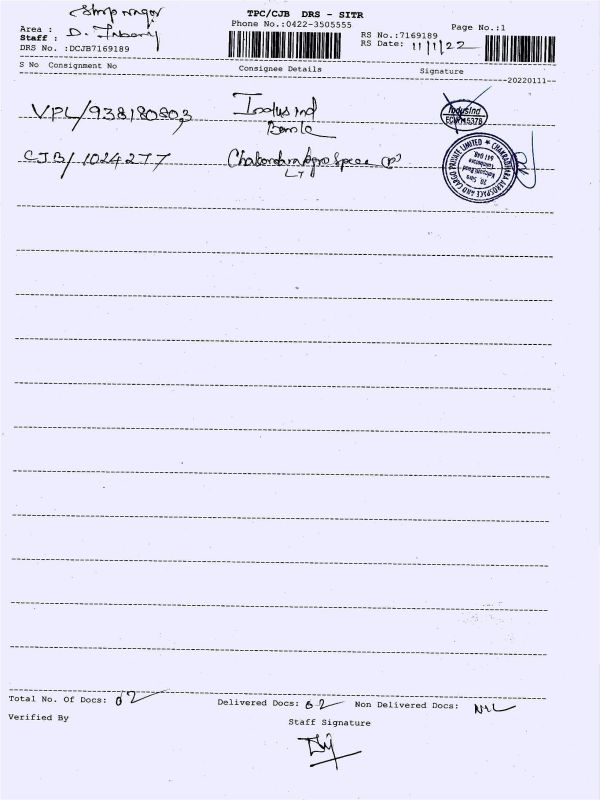 TPC/CJB DRS - SITR
Phone No.:0422-3505555
Page No.:1
Area : nagar
Staff : D.
RS No.:7169189
DRS No. :DCJB7169189
RS Date: 11/1/22
S No Consignment No Consignee Details Signature
20220111
VPL/938180803 Indus ind
Bank
IndusInd
CJB/1024277 (P)
LT
CHAKRADHARA AEROSPACE AND CARGO PRIVATE LIMITED
641 048
Total No. Of Docs: 02 Delivered Docs: 02 Non Delivered Docs: NIL
Verified By Staff Signature